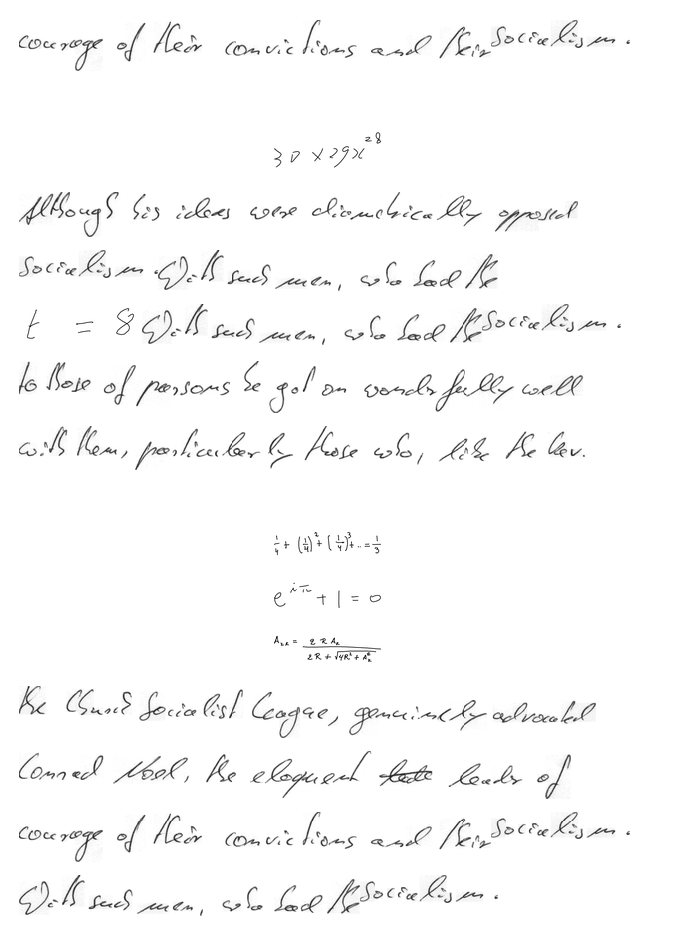 courage of their convictions and their Socialism.
30 × 29x^{28}
Although his ideas were diametrically opposed
Socialism. With such men, who had the
t = 8 With such men, who had the Socialism.
to those of persons he got on wonderfully well
with them, particularly those who, like the Rev.
\frac{1}{4} + (\frac{1}{4})^2 + (\frac{1}{4})^3 + .. = \frac{1}{3}
e^{iπ} + 1 = 0
A_{2x} = \frac{2 R A_x}{2R + \sqrt{4R^2 + A_x^2}}
the Church Socialist League, genuinely advocated
Conrad Noel, the eloquent leader of
courage of their convictions and their Socialism.
With such men, who had the Socialism.